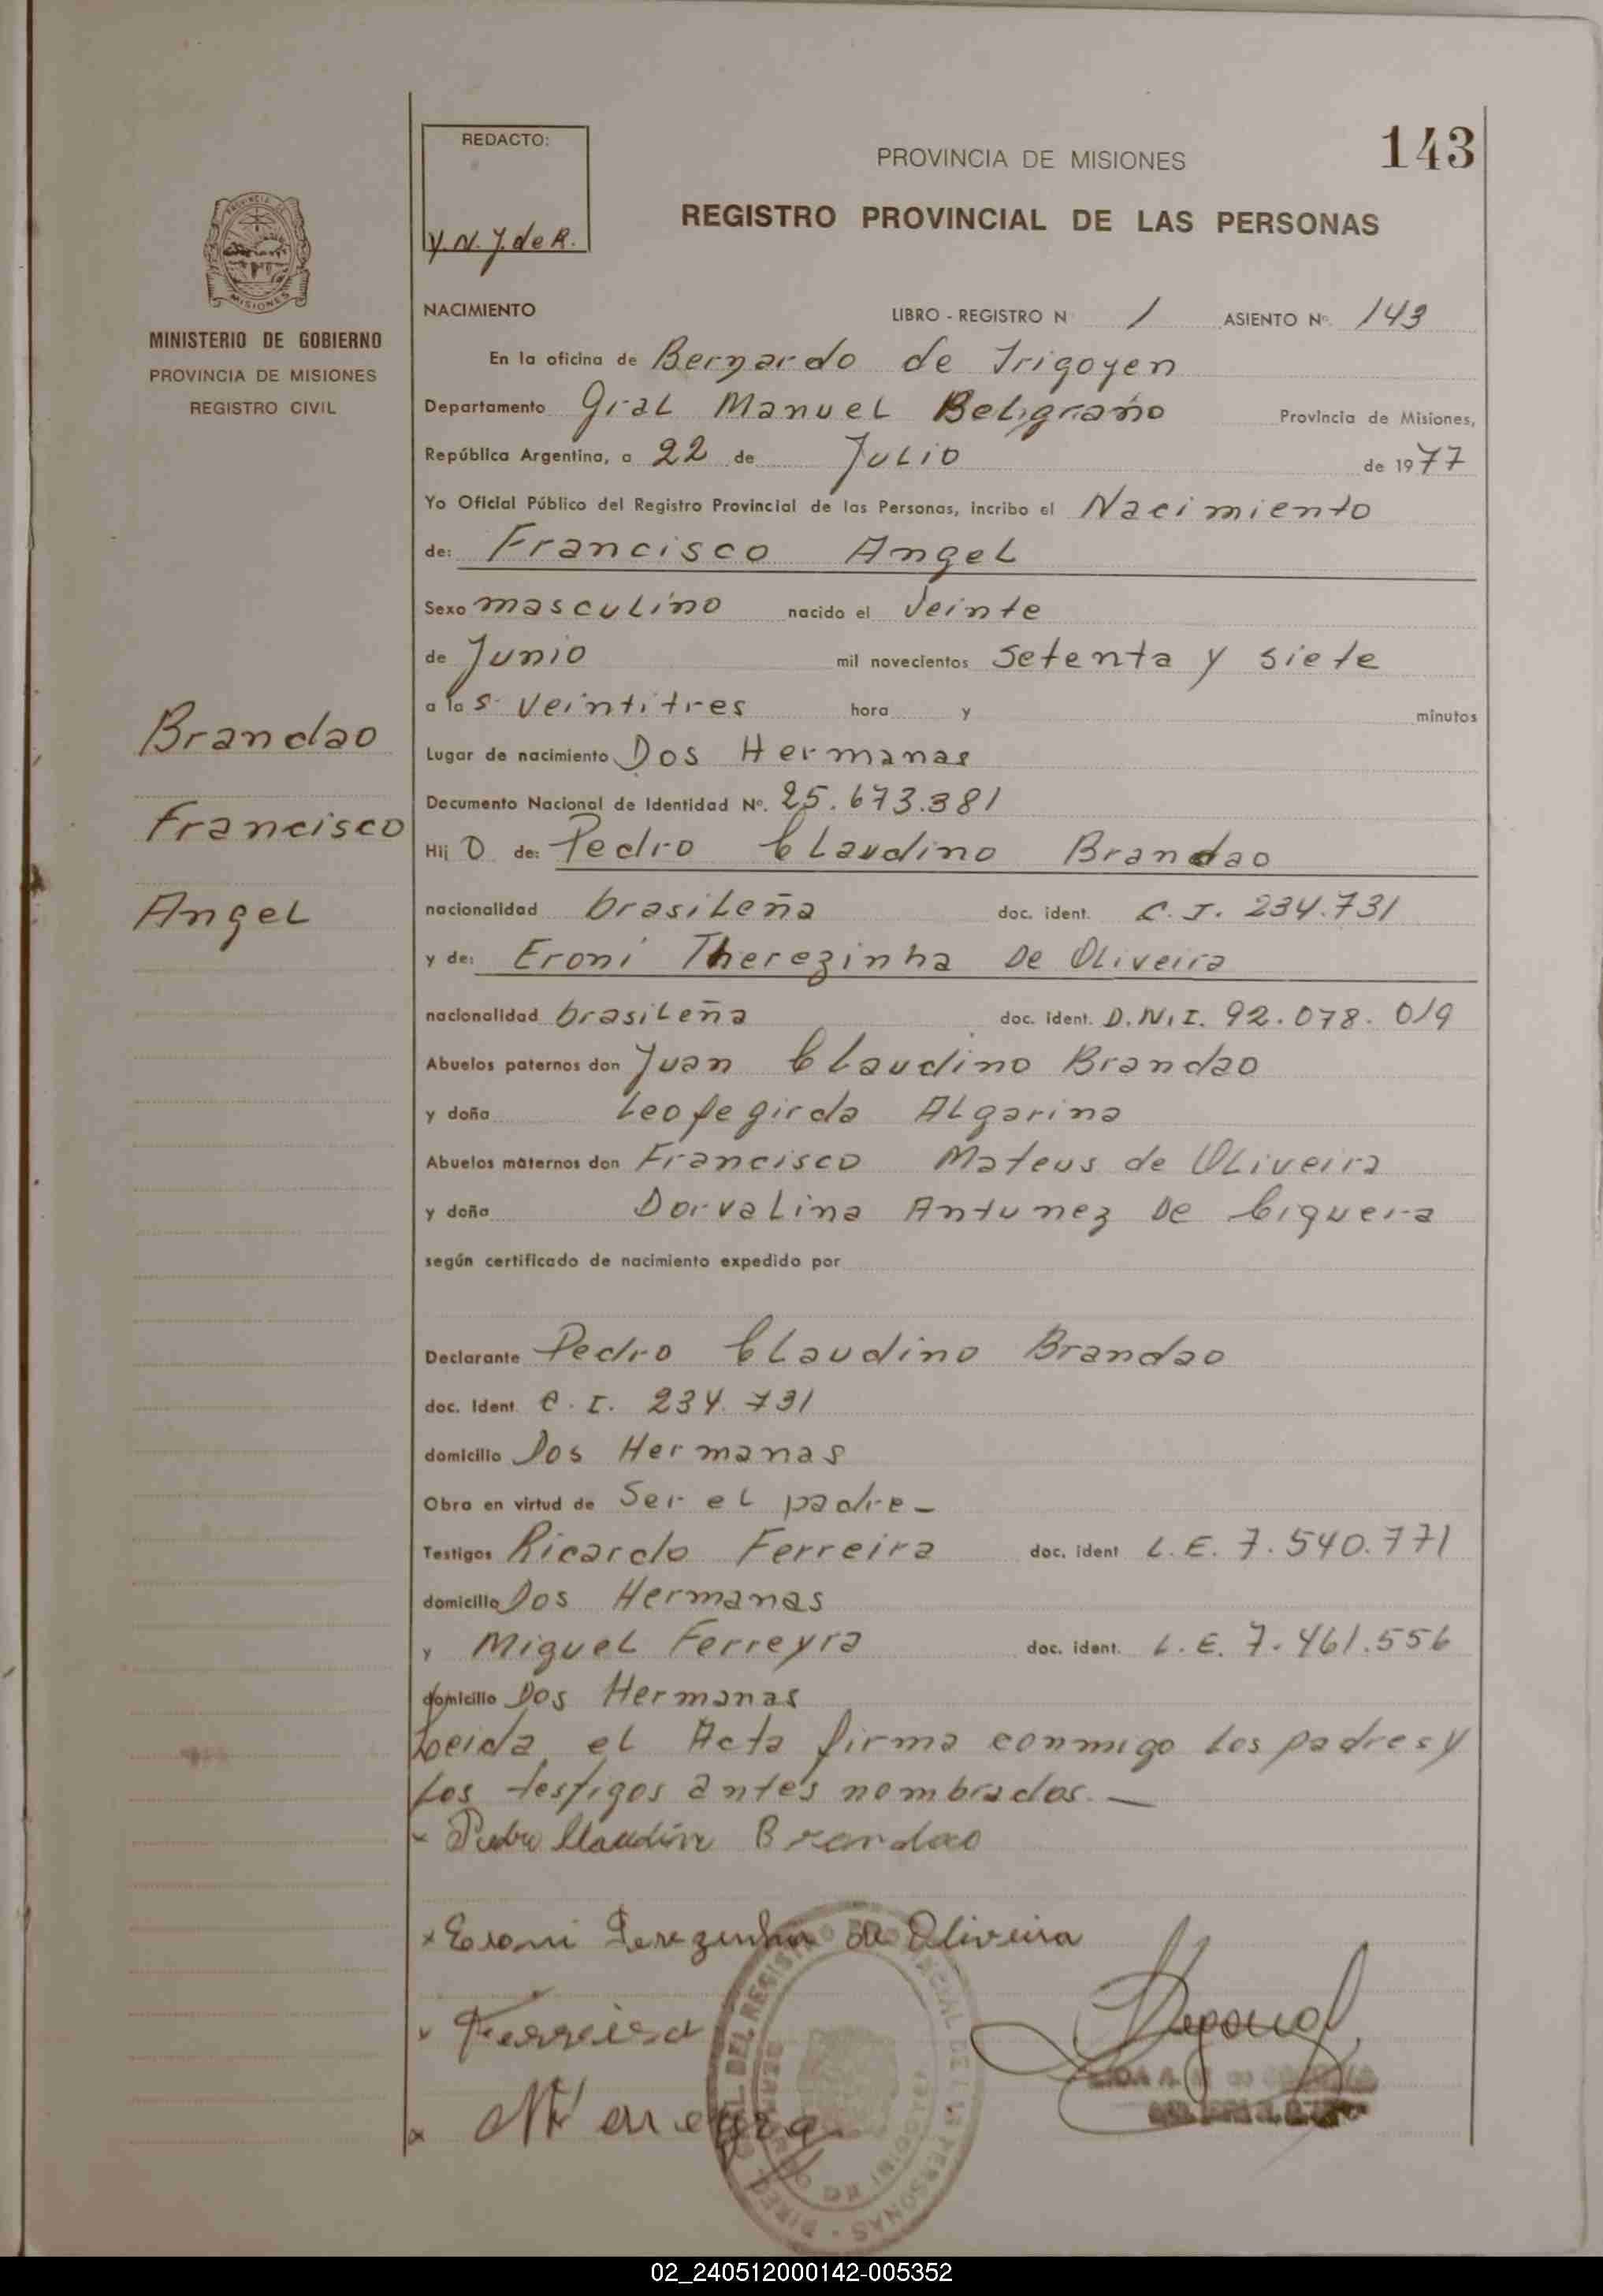 REDACTO:
Y. N. Y. de R.
PROVINCIA DE MISIONES
143
REGISTRO PROVINCIAL DE LAS PERSONAS
MISIONES
MINISTERIO DE GOBIERNO
PROVINCIA DE MISIONES
REGISTRO CIVIL
NACIMIENTO LIBRO - REGISTRO N 1 ASIENTO Nº. 143
En la oficina de Bernardo de Irigoyen
Departamento Gral Manuel Belgrano Provincia de Misiones,
República Argentina, a 22 de Julio de 1977
Yo Oficial Público del Registro Provincial de las Personas, incribo el Nacimiento
de: Francisco Angel
Sexo masculino nacido el veinte
de Junio mil novecientos setenta y siete
a las veintitres hora y minutos
Brandao
Francisco
Angel
Lugar de nacimiento Dos Hermanas
Documento Nacional de Identidad Nº. 25.673.381
Hij o de: Pedro Claudino Brandao
nacionalidad brasileña doc. ident. C. I. 234.731
y de: Eroni Therezinha De Oliveira
nacionalidad brasileña doc. ident. D.N.I. 92.078.019
Abuelos paternos don Juan Claudino Brandao
y doña Leofegirda Algarina
Abuelos maternos don Francisco Mateus de Oliveira
y doña Dorvalina Antunez De Ciqueira
según certificado de nacimiento expedido por
Declarante Pedro Claudino Brandao
doc. Ident. C. I. 234.731
domicilio Dos Hermanas
Obra en virtud de Ser el padre -
Testigos Ricardo Ferreira doc. ident L. E. 7.540.771
domicilio Dos Hermanas
y Miguel Ferreyra doc. ident. L. E. 7.461.556
domicilio Dos Hermanas
Leida el Acta firma conmigo los padres y
los testigos antes nombrados. —
x Pedro Claudino Brandao
x Eroni Terezinha de Oliveira
x Ferreira
x
02_240512000142-005352